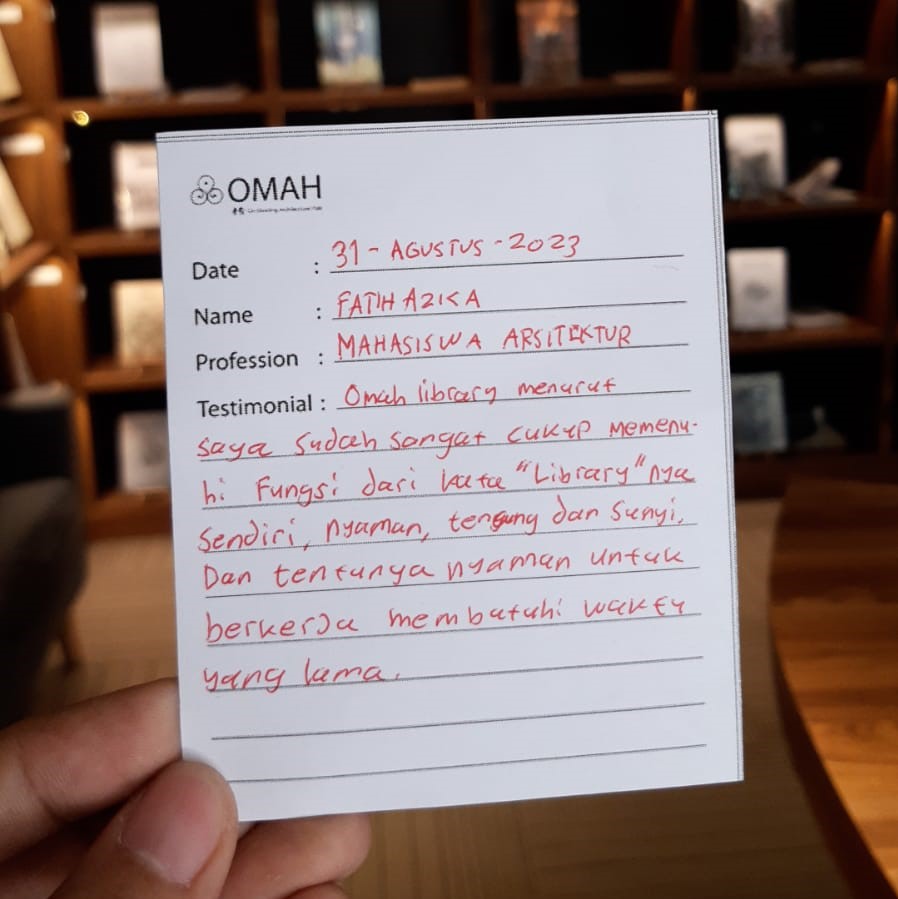 OMAH
Date : 31 - AGUSTUS - 2023
Name : FATIH AZIKA
Profession : MAHASISWA ARSITEKTUR
Testimonial : Omah library menurut
saya sudah sangat cukup memenu-
hi Fungsi dari kata "Library" nya
sendiri, nyaman, tengang dan sunyi,
Dan tentunya nyaman untuk
berkerja membutuhi waktu
yang lama.